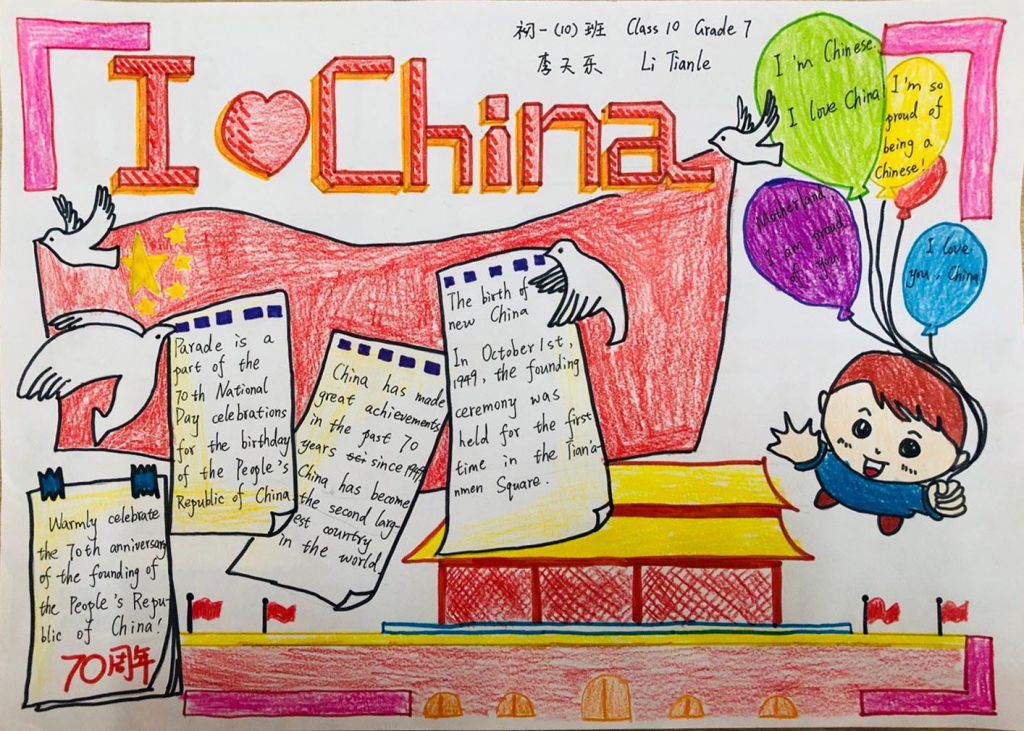 初一(10)班 Class 10 Grade 7
李天乐 Li Tianle
I China
I'm Chinese.
I love China
I'm so
proud of
being a
Chinese!
Motherland,
I am proud
of you
I love
you, China
The birth of
new China
In October 1st,
1949, the founding
ceremony was
held for the first
time in the Tian'a-
nmen Square.
Parade is a
part of the
70th National
Day celebrations
for the birthday
of the People's
Republic of China
China has made
great achievements
in the past 70
years since 1949
China has become
the second larg-
est country
in the world
Warmly celebrate
the 70th anniversary
of the founding of
the People's Repu-
blic of China!
70周年